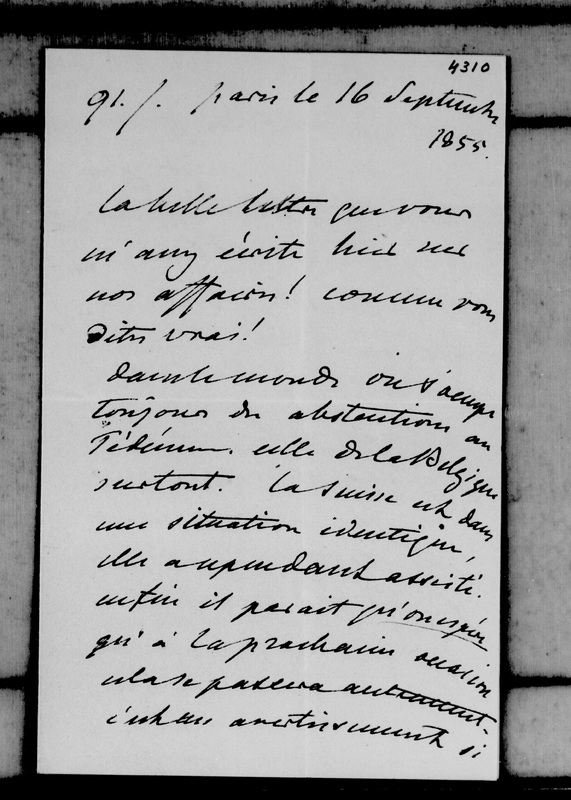 4310
91. f. Paris le 16 Septembre
1855.
La belle lettre que vous
m'avez écrite hier sur
nos affaires! comme vous
dites vrai!
Dans le monde on s'occupe
toujours des abstentions au
Tédéum. celle de la Belgique
surtout. La Suisse est dans
une situation identique,
elle a cependant assisté.
enfin il parait qu'on espère
qu'à la prochaine occasion
cela se passera autrement.
c'est un avertissement si